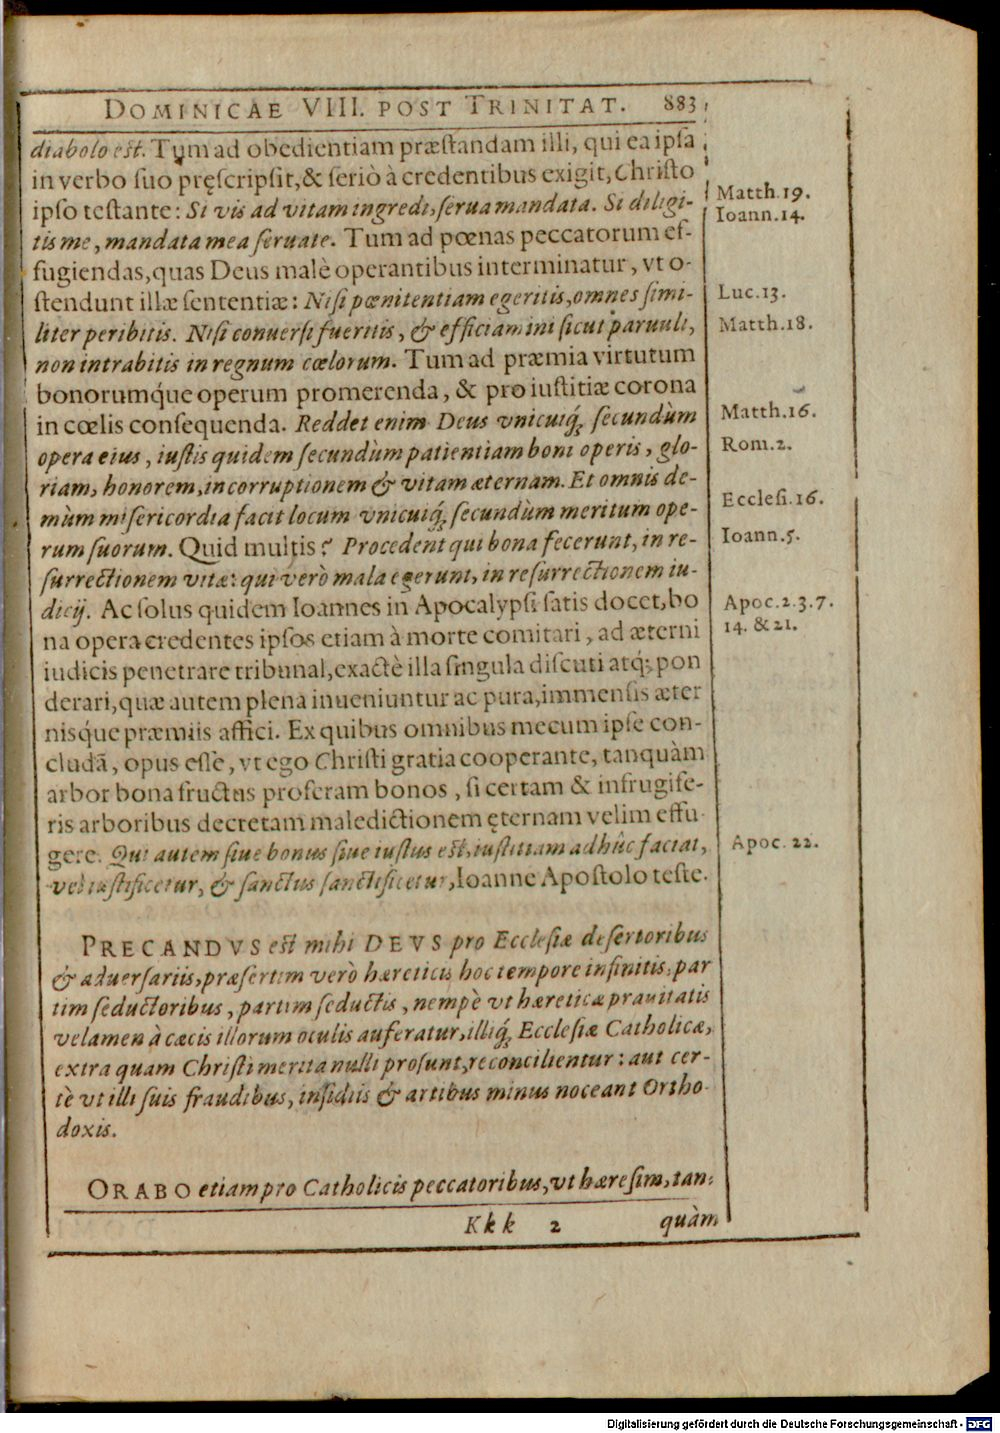 DOMINICAE VIII. POST TRINITAT. 883
diabolo est. Tum ad obedientiam præstandam illi, qui ea ipsa
in verbo suo pręscripsit, & seriò à credentibus exigit, Christo
ipso testante: Si vis ad vitam ingredi, serua mandata. Si diligi-
tis me, mandata mea seruate. Tum ad pœnas peccatorum ef-
fugiendas, quas Deus malè operantibus interminatur, vt o-
stendunt illæ sententiæ: Nisi pœnitentiam egeritis, omnes simi-
liter peribitis. Nisi conuersi fueritis, & efficiamini sicut paruuli,
non intrabitis in regnum cœlorum. Tum ad præmia virtutum
bonorumq́ue operum promerenda, & pro iustitiæ corona
in cœlis consequenda. Reddet enim Deus vnicuiq́; secundùm
opera eius, iustis quidem secundùm patientiam boni operis, glo-
riam, honorem, incorruptionem & vitam æternam. Et omnis de-
mùm misericordia facit locum vnicuiq́; secundùm meritum ope-
rum suorum. Quid multis? Procedent qui bona fecerunt, in re-
surrectionem vitæ: qui verò mala egerunt, in resurrectionem iu-
dicij. Ac solus quidem Ioannes in Apocalypsi satis docet, bo
na opera credentes ipsos etiam à morte comitari, ad æterni
iudicis penetrare tribunal, exactè illa singula discuti atq́; pon
derari, quæ autem plena inueniuntur ac pura, immensis æter
nisq́ue præmiis affici. Ex quibus omnibus mecum ipse con-
cludā, opus esse, vt ego Christi gratia cooperante, tanquàm
arbor bona fructus proferam bonos, si certam & infrugife-
ris arboribus decretam maledictionem ęternam velim effu
gere. Qui autem siue bonus siue iustus est, iustitiam adhûc faciat,
vel iustificetur, & sanctus sanctificetur, Ioanne Apostolo teste.
Matth. 19.
Ioann. 14.
Luc. 13.
Matth. 18.
Matth. 16.
Rom. 2.
Ecclesi. 16.
Ioann. 5.
Apoc. 2. 3. 7.
14. & 21.
Apoc. 22.
PRECANDVS est mihi DEVS pro Ecclesiæ desertoribus
& aduersariis, præsertim verò hæreticis hoc tempore infinitis, par
tim seductoribus, partim seductis, nempè vt hæreticæ prauitatis
velamen à cæcis illorum oculis auferatur, illiq́; Ecclesiæ Catholicæ,
extra quam Christi merita nulli prosunt, reconcilientur: aut cer-
tè vt illi suis fraudibus, insidiis & artibus minus noceant Ortho-
doxis.
ORABO etiam pro Catholicis peccatoribus, vt hæresim, tan-
Kkk 2 quàm
Digitalisierung gefördert durch die Deutsche Forschungsgemeinschaft - DFG